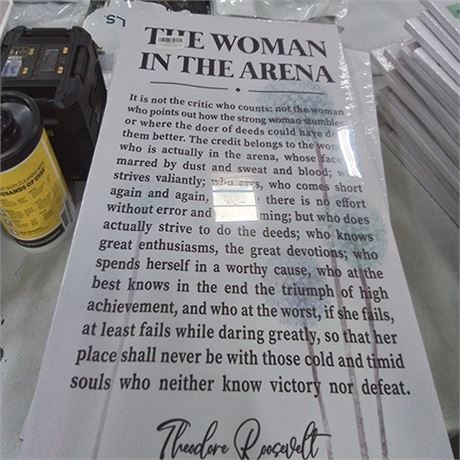 THE WOMAN
IN THE ARENA
It is not the critic who counts: not the woman
who points out how the strong woman stumbles
or where the doer of deeds could have
them better. The credit belongs to the
who is actually in the arena, whose face
marred by dust and sweat and blood;
strives valiantly; who errs, who comes short
again and again, there is no effort
without error and but who does
actually strive to do the deeds; who knows
great enthusiasms, the great devotions; who
spends herself in a worthy cause, who at the
best knows in the end the triumph of high
achievement, and who at the worst, if she fails,
at least fails while daring greatly, so that her
place shall never be with those cold and timid
souls who neither know victory nor defeat.
Theodore Roosevelt